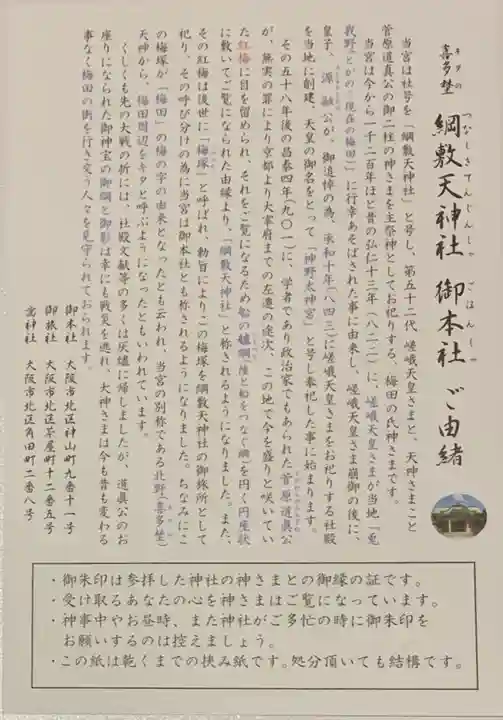 キタの
喜多埜
つなしきてんじんしゃ ごほんしゃ
綱敷天神社 御本社 ご由緒
当宮は社号を「綱敷天神社」と号し、第五十二代 嵯峨天皇さまと、天神さまこと
菅原道真公の御二柱の神さまを主祭神としてお祀りする、梅田の氏神さまです。
当宮は今から一千二百年ほど昔の弘仁十三年(八二二)に、嵯峨天皇さまが当地「兎
我野(とがの・現在の梅田)」に行幸あそばされた事に由来し、嵯峨天皇さま崩御の後に、
皇子、源 融公が、御追悼の為、承和十年(八四三)に嵯峨天皇さまをお祀りする社殿
を当地に創建、天皇の御名をとって「神野太神宮」と号し奉祀した事に始まります。
その五十八年後の昌泰四年(九〇一)に、学者であり政治家でもあられた菅原道真公
が、無実の罪により京都より大宰府までの左遷の途次、この地で今を盛りと咲いてい
た紅梅に目を留められ、それをご覧になるため船の艫綱(陸と船をつなぐ綱)を円く円座状
に敷いてご覧になられた由縁より、「綱敷天神社」と称されるようになりました。また、
その紅梅は後世に「梅塚」と呼ばれ、勅旨によりこの梅塚を綱敷天神社の御旅所として
祀り、その呼び分けの為に当宮は御本社とも称されるようになりました。ちなみにこ
の梅塚が「梅田」の梅の字の由来となったとも云われ、当宮の別称である北野(喜多埜)
天神から、梅田周辺をキタと呼ぶようになったともいわれています。
くしくも先の大戦の折には、社殿文献等の多くは灰燼に帰しましたが、道真公のお
座りになられた御神宝の御綱と御影は幸にも戦災を逃れ、大神さまは今も昔も変わる
事なく梅田の街を行き交う人々を見守られておられます。
御本社 大阪市北区神山町九番十一号
御旅社 大阪市北区茶屋町十二番五号
歯神社 大阪市北区角田町二番八号
・御朱印は参拝した神社の神さまとの御縁の証です。
・受け取るあなたの心また神さまはご覧になっています。
・神事中やお昼の時、また神社がご多忙の時に御朱印を
お願いするのは控えましょう。
・この紙は乾くまでの挟み紙です。処分頂いても結構です。